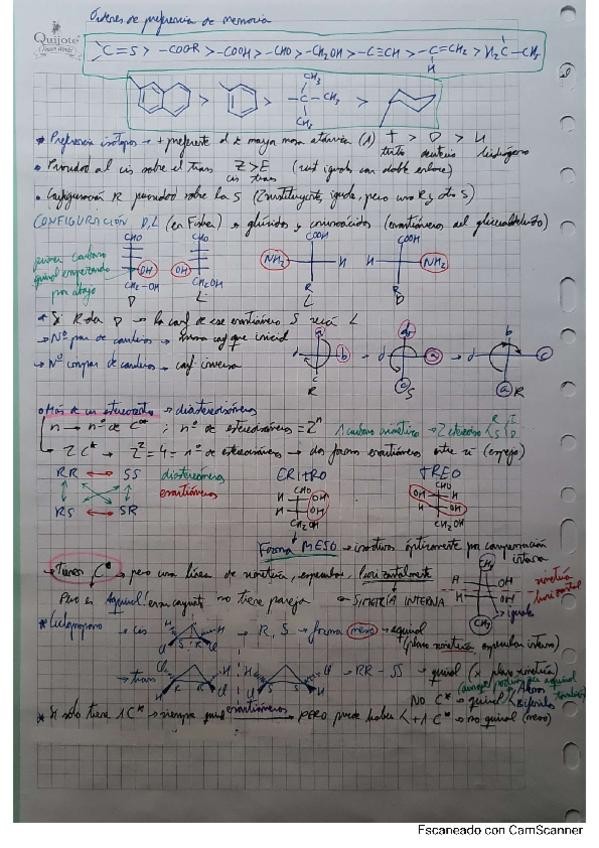 Órdenes de preferencia de memoria
Quijote
C=S > -COOR > -COOH > -CHO > -CH2OH > -C≡CH > -C=CH2 > H2C-CH3
H
> > -C-CH3 >
CH3
CH3
* Preferencia isótopos → + preferente el d mayor masa atómica (1) T > D > H
tritio deuterio hidrógeno
• Prioridad al cis sobre el trans Z > E (sust iguales con doble enlace)
cis trans
• Configuración R prioridad sobre la S (2 sustituyentes iguales, pero uno R y otro S)
CONFIGURACIÓN D,L (en Fisher) → glúcidos y aminoácidos (enantiómeros del gliceraldehído)
CHO CHO COOH COOH
primer carbono
quiral empezando
por abajo
OH OH NH2 H H NH2
CH2-OH CH2OH R R
D L L D
* Si R da D → la conf de ese enantiómero S será L
→ Nº par de cambios → misma conf que inicial
→ Nº impar de cambios → conf inversa
a d b
d b a d c
c R c S a R
• Más de un estereocentro → diastereómeros
n → nº de C* ; nº de estereoisómeros = 2ⁿ
1 carbono asimétrico → 2 estereois
R D
S L
2 C* → 2² = 4 = nº de estereoisómeros → dos formas enantiómeras entre sí (espejo)
RR ↔ SS diastereómeros
enantiómeros
RS ↔ SR
ERITRO TREO
CHO CHO
OH OH H
OH H OH
CH2OH CH2OH
Forma MESO → inactivos ópticamente por compensación interna
→ Tienen C* → pero una línea de simetría, especular, horizontalmente
Pero es Aquiral! no tiene pareja
→ SIMETRÍA INTERNA
CH3
H OH
H OH
CH3
simetría horizontal
iguales
* Ciclopropano → cis → R, S → forma meso → aquiral
(plano simétrico especular interno)
→ trans → RR - SS → quiral (x plano simetría)
NO C* → quiral < Alenos
Bifenilos
* Si sólo tiene 1 C* → siempre quiral enantiómeros → PERO puede haber < +1 C* → no quiral (meso)
Escaneado con CamScanner